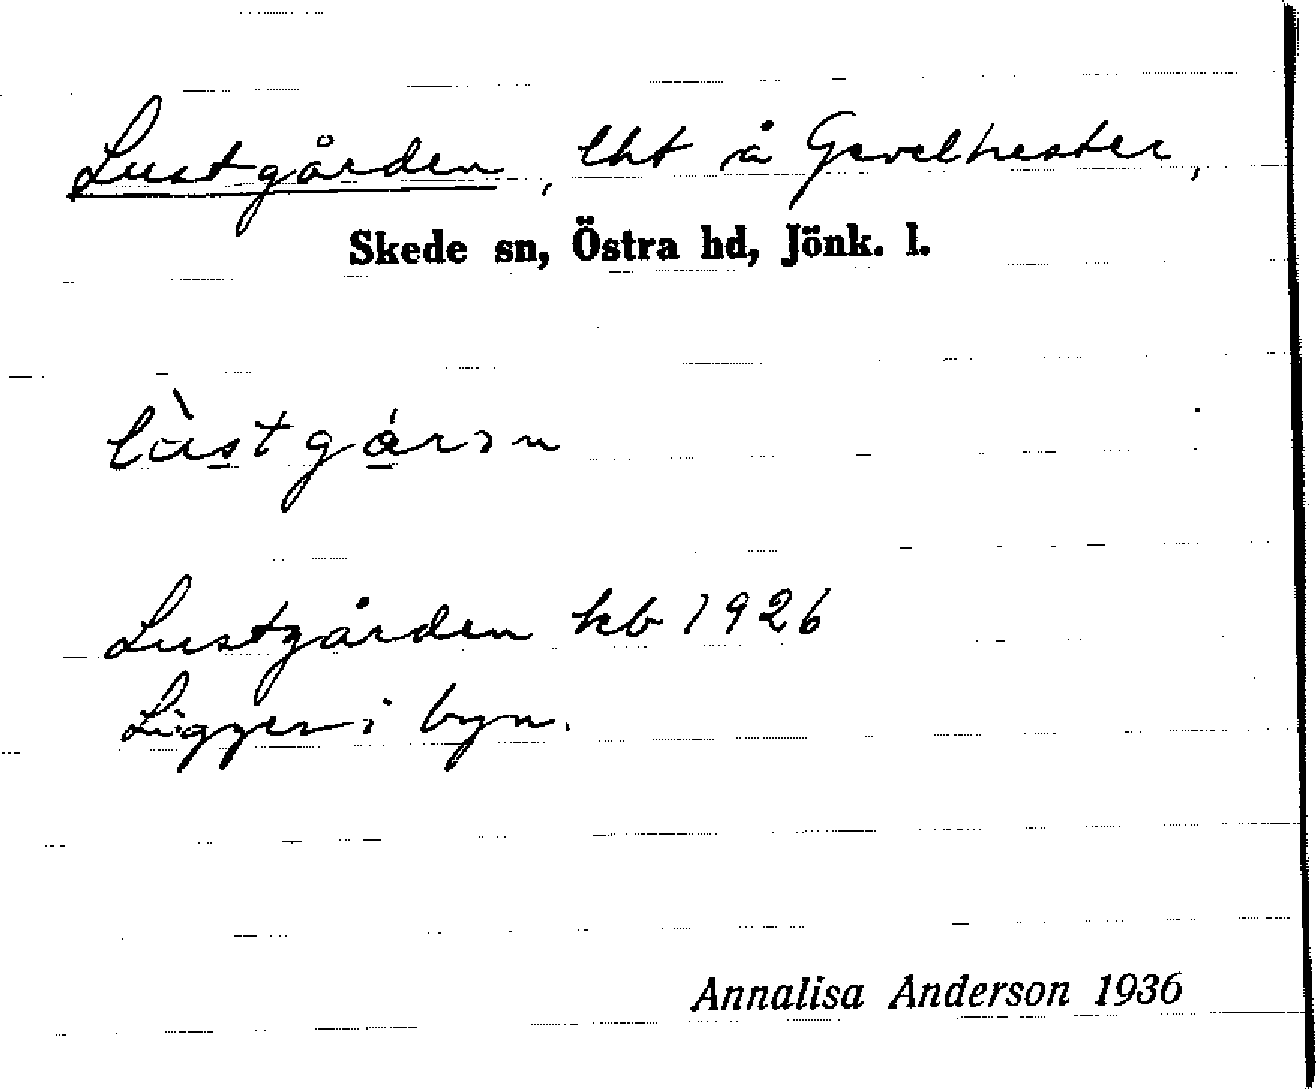 Lustgården, lht å Gavelhester,
Skede sn, Östra hd, Jönk. l.
lùstgårən
Lustgården kb 1926
Ligger i byn.
Annalisa Anderson 1936